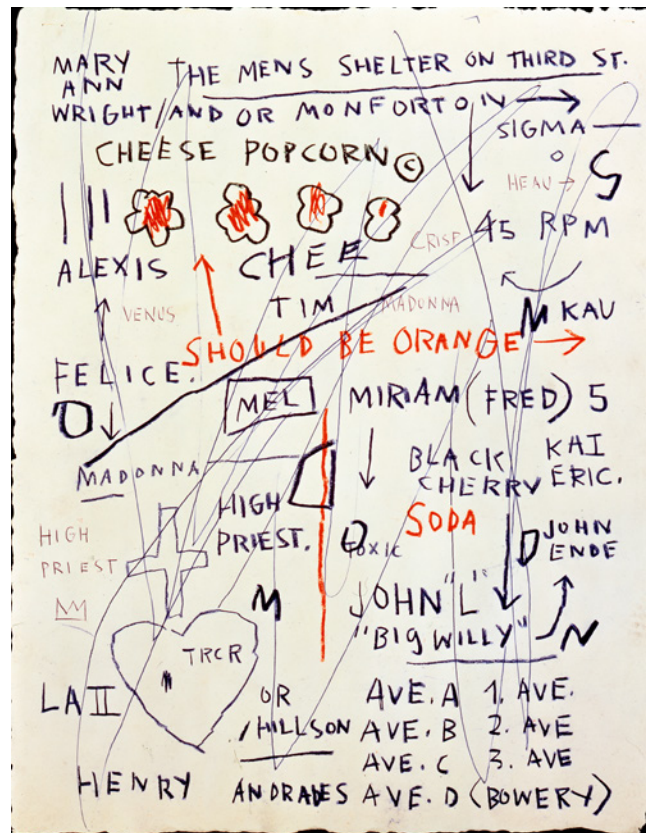 MARY THE MENS SHELTER ON THIRD ST.
ANN
WRIGHT/AND OR MONFORTON
SIGMA
CHEESE POPCORN ©
HEAU → S
CRISP 45 RPM
ALEXIS CHEE
VENUS TIM MADONNA M KAU
SHOULD BE ORANGE
FELICE.
MEL MIRIAM (FRED) 5
O
MADONNA BLACK KAI
CHERRY ERIC.
HIGH
PRIEST. SODA
HIGH TOXIC D JOHN
PRIEST ENDE
M JOHN "L"
"BIG WILLY" N
TRCR
LA II OR AVE. A 1. AVE.
/HILLSON AVE. B 2. AVE
AVE. C 3. AVE
HENRY ANDRADES AVE. D (BOWERY)